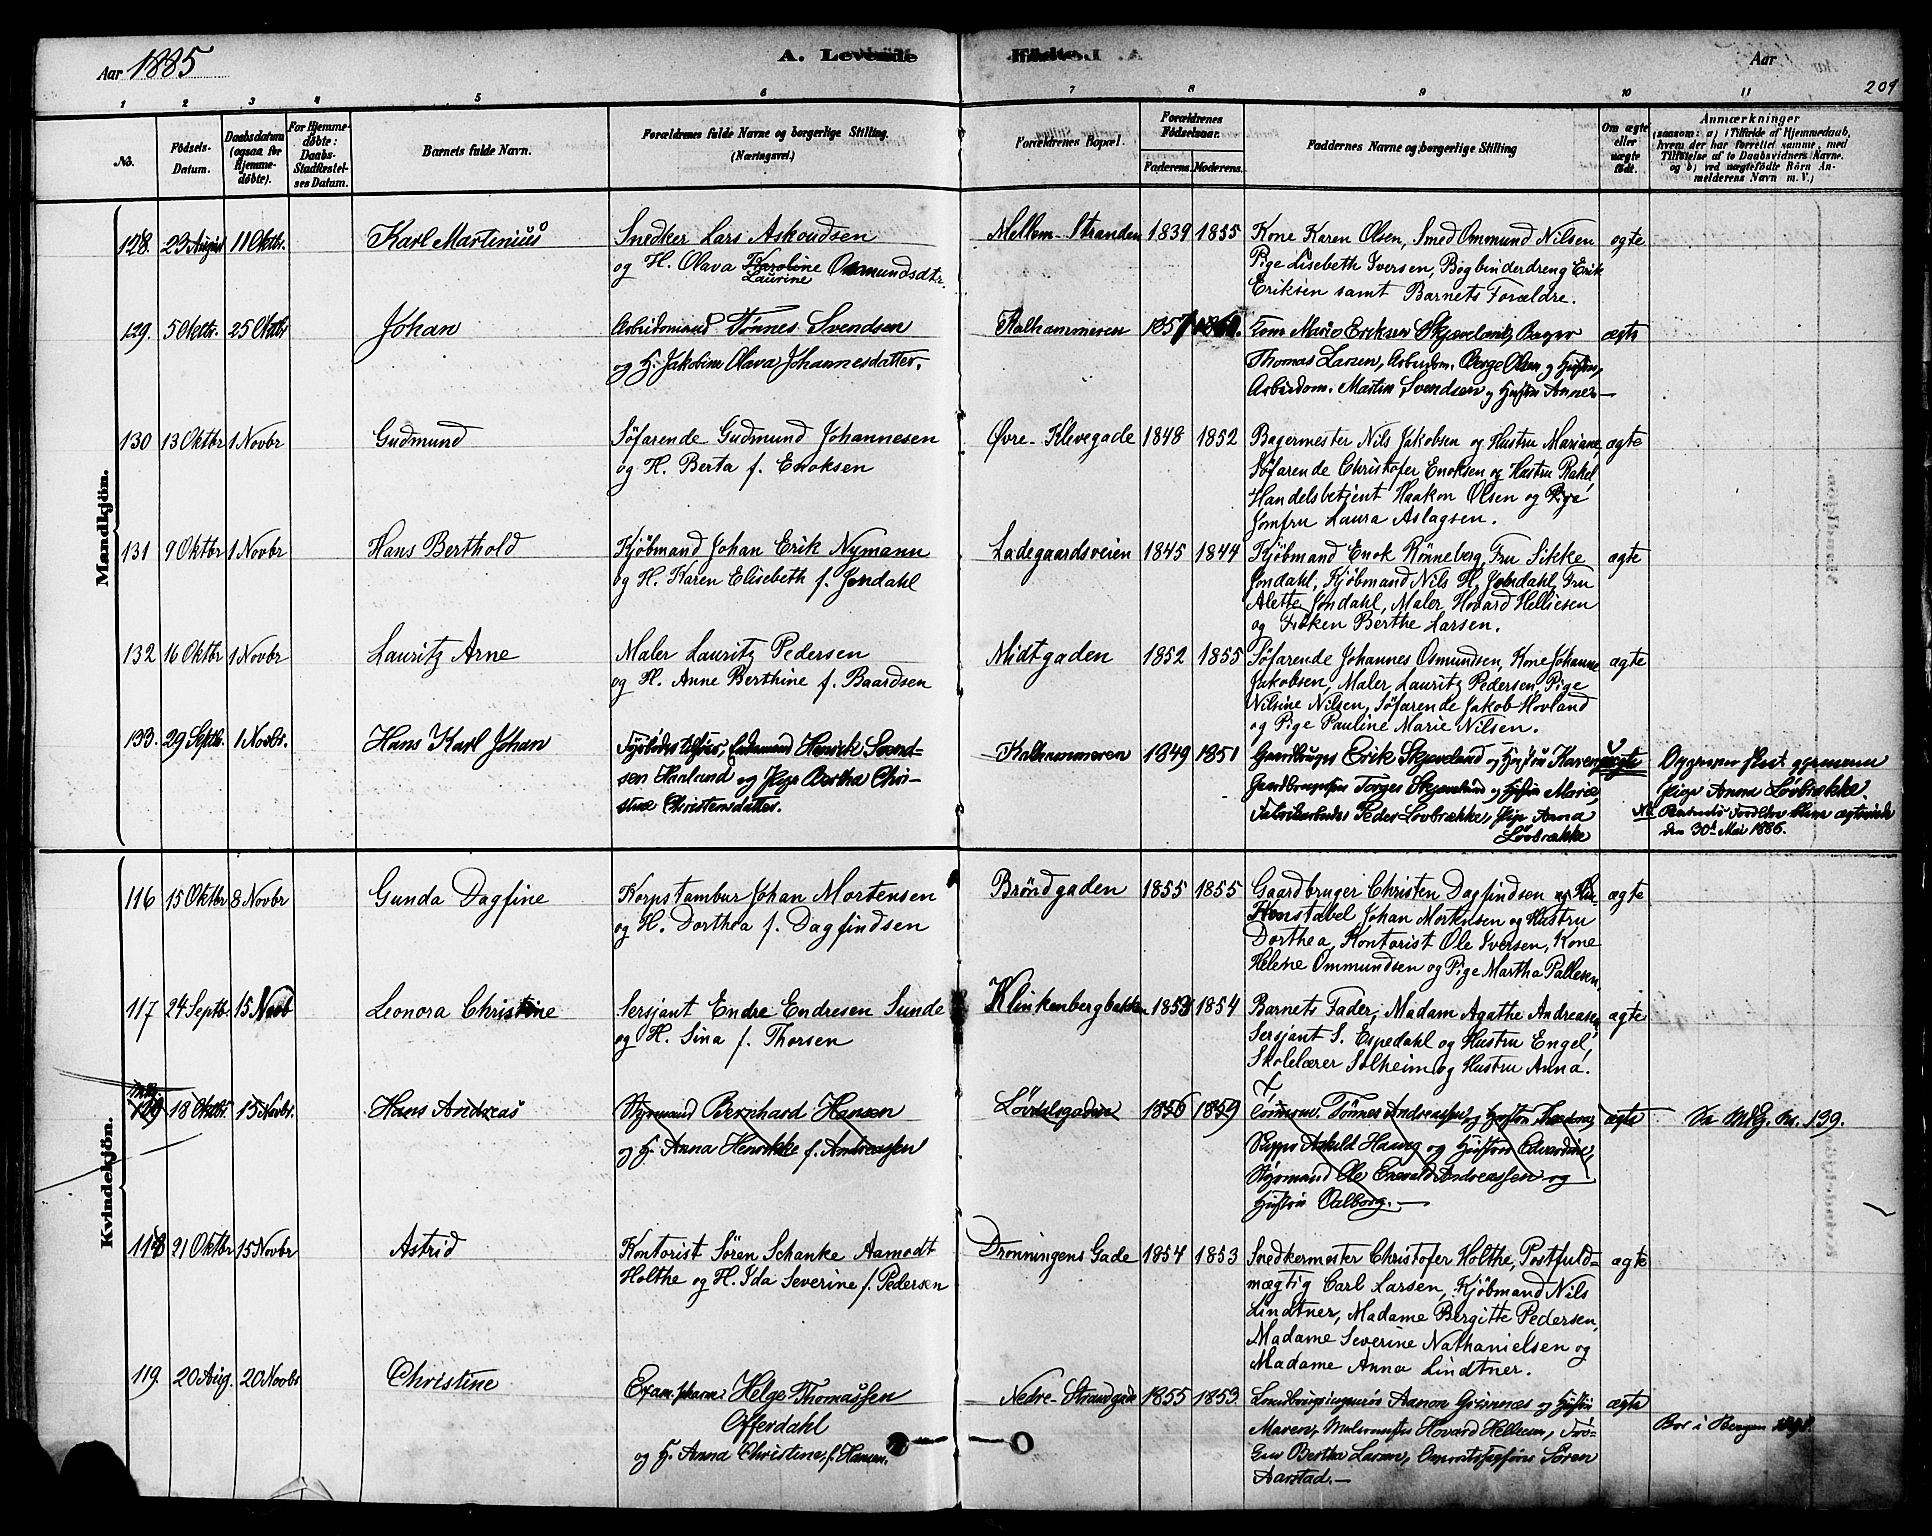 Aar 1885
A. Levende
Fødte.
Aar
209
1 2 3 4 5 6 7 8 9 10 11
No.
Fødsels-Datum.
Daabsdatum (ogsaa for Hjemmedøbte).
For Hjemmedøbte: Daabs-Stadfæstelses Datum.
Barnets fulde Navn.
Forældrenes fulde Navne og borgerlige Stilling. (Næringsvei.)
Forældrenes Bopæl.
Forældrenes Fødselsaar.
Faderens. Moderens.
Faddernes Navne og borgerlige Stilling
Om ægte eller uægte født.
Anmærkninger
(saasom: a) i Tilfælde af Hjemmedaab, hvem der har forrettet samme, med Tilføielse af to Daabsvidners Navne. og b) ved uægtefødte Børn Anmelderens Navn m. V.)
Mandkjön.
128. 23 August 11 Oktbr. Karl Martinius Snedker Lars Askoudsen Mellem-Stranden 1839 1855 Kone Karen Olsen, Smed Ommund Nilsen ægte
og H. Olava Karoline Osmundsdtr. Pige Lisebeth Iversen, Bogbinderdreng Erik
Laurine Eriksen samt Barnets Forældre.
129. 5 Oktbr. 25 Oktbr Johan Arbeidsmand Tönnes Svendsen Kalhammeren 1857 Kone Marie Eriksen Skjæveland, Bager ægte
og H. Jakobine Olava Johannesdatter. Thomas Larsen, Arbeidsm. Berge Olsen og Hustru,
Arbeidsm. Martin Svendsen og Hustru Anne
130 13 Oktbr 1 Novbr Gudmund Söfarende Gudmund Johannesen Övre-Klevegade 1848 1852 Bagermester Nils Jakobsen og Hustru Mariane, ægte
og H. Berta f. Enoksen Söfarende Christofer Enoksen og Hustru Rakel
Handelsbetjent Haakon Olsen og Pige
Jomfru Laura Aslagsen.
131 9 Oktbr 1 Novbr Hans Berthold Kjöbmand Johan Erik Nymann Ladegaardsveien 1845 1844 Kjöbmand Enok Rönneberg, Fru Sikke ægte
og H. Karen Elisebeth f. Jondahl Jondahl, Kjöbmand Nils H. Jondahl, Fru
Alette Jondahl, Maler Hovard Helliesen
og Fröken Berthe Larsen.
132 16 Oktbr 1 Novbr Lauritz Arne Maler Lauritz Pedersen Midtgaden 1852 1855 Söfarende Johannes Osmundsen, Kone Johanne ægte
og H. Anne Berthine f. Baardsen Jakobsen, Maler Lauritz Pedersen, Pige
Nilsine Nilsen, Söfarende Jakob Hovland
og Pige Pauline Marie Nilsen.
133. 29 Septbr. 1 Novbr. Hans Karl Johan Fyrböder tilsöes, Endemand Henrik Svend- Kalhammeren 1849 1851 Gaardbruger Erik Skjæveland og Hustru Karen, uægte
sen Haaland og Pige Bertha Chri- Gaardbruger Torges Skjæveland og Hustru Marie,
stine Christensdatter. Fabrikarbeider Peder Lövbrække, Pige Anna
Lövbrække
Opgivener
Pige Anna Lövbrække.
NB. Barnets Forældre blev ægteviede
den 30te Mai 1886.
Kvindekjön.
116 15 Oktbr 8 Novbr Gunda Dagfine Korpstambur Johan Mortensen Bröndgaden 1855 1855 Gaardbruger Christen Dagfindsen ægte
og H. Dorthea f. Dagfindsen Konstabel Johan Mortensen og Hustru
Dorthea, Kontorist Ole Iversen, Kone
Helene Ommundsen og Pige Martha Pallesen.
117 24 Septbr 15 Novb Leonora Christine Sersjant Endre Endresen Sunde Klinkenbergbakken 1853 1854 Barnets Fader, Madam Agathe Andreasen, ægte
og H. Sina f. Thorsen Sersjant S. Espedahl og Hustru Engel,
Skolelærer Solheim og Hustru Anna.
18 Oktbr. 15 Novbr. Hans Andreas Styrmand Bernhard Hansen Lövdalsgaden 1856 1859 Tömmerm. Tönnes Andreassen og Hustru Theodora, ægte Se Mkj. No. 139.
og H. Anna Henrikke f. Andreassen Skipper Askild Hauog og Hustru Edvardine,
Styrmand Ole Enevald Andreassen og
Hustru Valborg.
118 21 Oktbr 15 Novbr Astrid Kontorist Sören Schanke Aamodt Dronningens Gade 1854 1853 Snedkermester Christofer Holthe, Postfuld- ægte
Holthe og H. Ida Severine f. Pedersen mægtig Carl Larsen, Kjöbmand Nils
Lindtner, Madame Bergitte Pedersen,
Madame Severine Nathanielsen og
Madame Anna Lindtner.
119. 20 Aug. 20 Novbr Christine Exam. pharm. Helge Thomassen Nedre-Strandgade 1855 1853. Aanon og Hustru ægte
Offerdahl Maren, Malermester Hovard Helliesen, Frö-
og H. Anna Christine, f. Hansen. ken Bertha Larsen, Sören
Aarstad.
Bor i Bergen 1898.